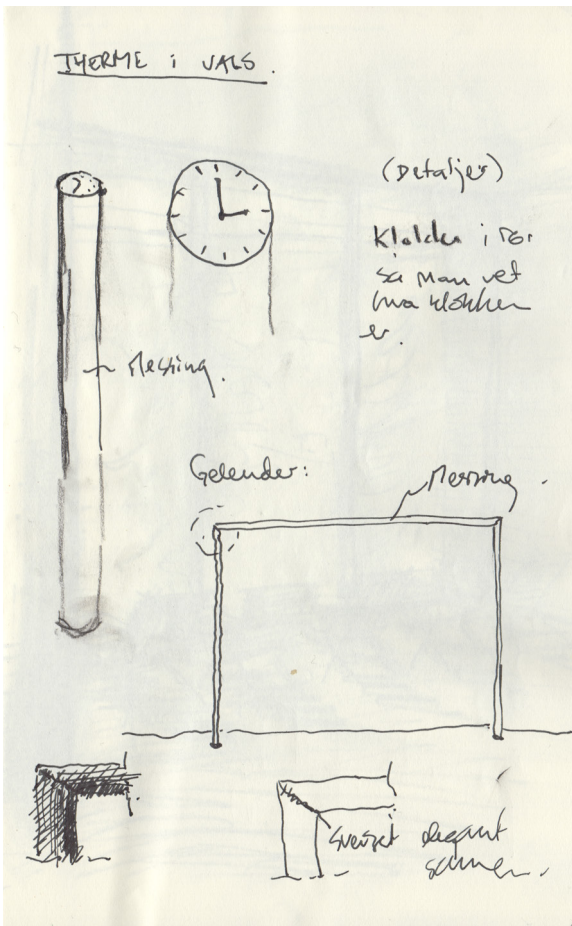 THERME i VALS.
(Detaljer)
Klokke i rør
så man vet
hva klokken
er.
Messing.
Gelender:
Messing.
Sveiset elegant
sammen.